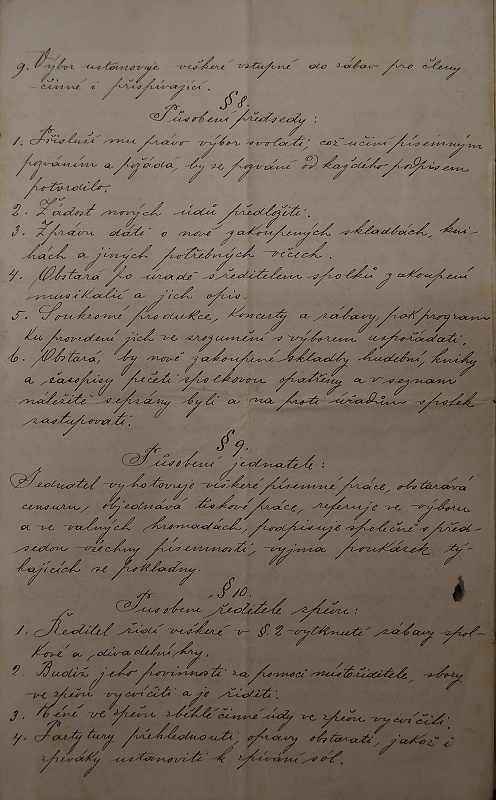 9. Výbor ustanovuje veškeré vstupné do zábav pro členy
činné i přispívající.
§ 8.
Působení předsedy:
1. Přísluší mu právo výbor svolati, což učiní písemným
pozváním a požádá, by se pozvání od každého podpisem
potvrdilo.
2. Žádost nových údů předložiti.
3. Zprávu dáti o nově zakoupených skladbách, kni-
hách a jiných potřebných věcech.
4. Obstará po úradě s ředitelem spolků zakoupení
musikalií a jich opis.
5. Soukromé produkce, koncerty a zábavy, pak program
ku provedení jich ve srozumění s výborem uspořádati.
6. Obstará, by nově zakoupené skladby hudební, knihy
a časopisy pečetí spolkovou opatřeny a v seznam
náležitě sepsány byli a na proti úřadům spolek
zastupovati.
§ 9.
Působení jednatele:
Jednatel vyhotovuje veškeré písemné práce, obstarává
censuru, objednává tiskové práce, referuje ve výboru
a ve valných hromadách, podpisuje společně s před-
sedou všechny písemnosti, vyjma poukázek tý-
kajících se pokladny.
§ 10.
Působení ředitele zpěvu:
1. Ředitel řídí veškeré v §. 2 vytknuté zábavy spol-
kové a divadelní hry.
2. Budiž jeho povinností za pomoci místořiditele, sbory
ve zpěvu vycvičiti a je říditi.
3. Méně ve zpěvu zběhlé činné údy ve zpěvu vycvičiti.
4. Partytury přehlednouti, opravy obstarati, jakož i
zpěváky ustanoviti k zpívání sól.